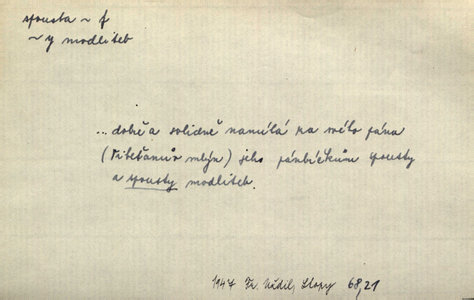 spousta ~ f
~ y modliteb
... dobře a solidně namílá na svého pána
(Tibeťanův mlýn) jeho pánbíčkům spousty
a spousty modliteb.
1947 Fr. Kožík, Stopy 68,21